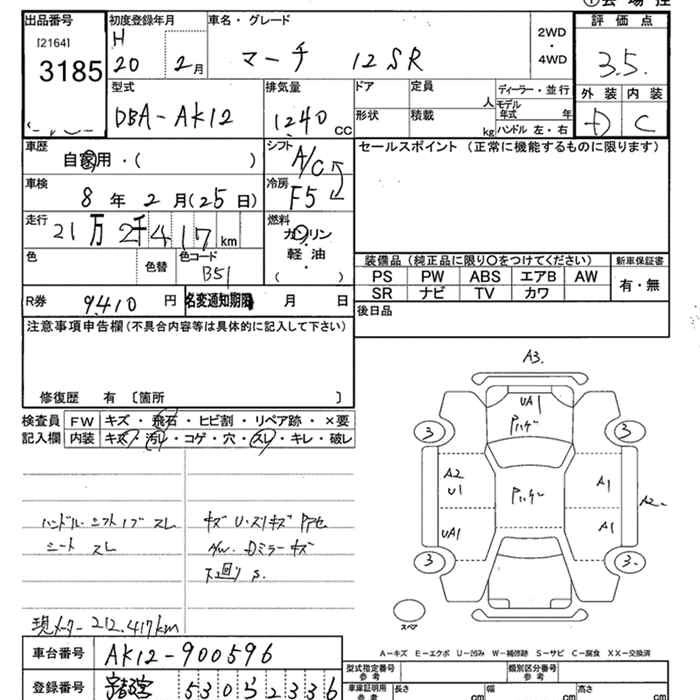 ①会場控
出品番号
[2164]
3185
初度登録年月
H
20 2月
車名・グレード
マーチ 12SR
2WD
・
4WD
評価点
3.5.
外装 内装
D C
型式
DBA-AK12
排気量
1240 cc
ドア
形状
定員 人
積載 kg
ディーラー・並行
モデル
年式 年
ハンドル 左・右
車歴
自家用・( )
シフト
A/C
冷房
F5
セールスポイント (正常に機能するものに限ります)
車検
8年 2月(25日)
走行
21万2千417km
燃料
ガソリン
軽油
( )
色
色替
色コード
B51
装備品 (純正品に限り〇をつけてください)
新車保証書
PS PW ABS エアB AW
SR ナビ TV カワ
有・無
R券 9,410 円
名変通知期限 月 日
後日品
注意事項申告欄(不具合内容等は具体的に記入して下さい)
修復歴 有 〔箇所 〕
検査員
記入欄
FW キズ・飛石・ヒビ割・リペア跡・×要
内装 キズ・汚レ・コゲ・穴・スレ・キレ・破レ
ハンドル・シフトノブ スレ
シート スレ
キズ U・スリキズ
AW・Dミラーキズ
下回り S.
現メーター 212,417km
A3.
UA1
Pハゲ
3 3
A2
U1
Pハゲ
A1
A2.
UA1
A1
3 3.
スペア
A-キズ E-エクボ U-凹み W-補修跡 S-サビ C-腐食 XX-交換済
車台番号 AK12-900596
登録番号 530 52336
型式指定番号
参考
類別区分番号
参考
車庫証明用
参考
長さ cm
幅 cm
高さ cm